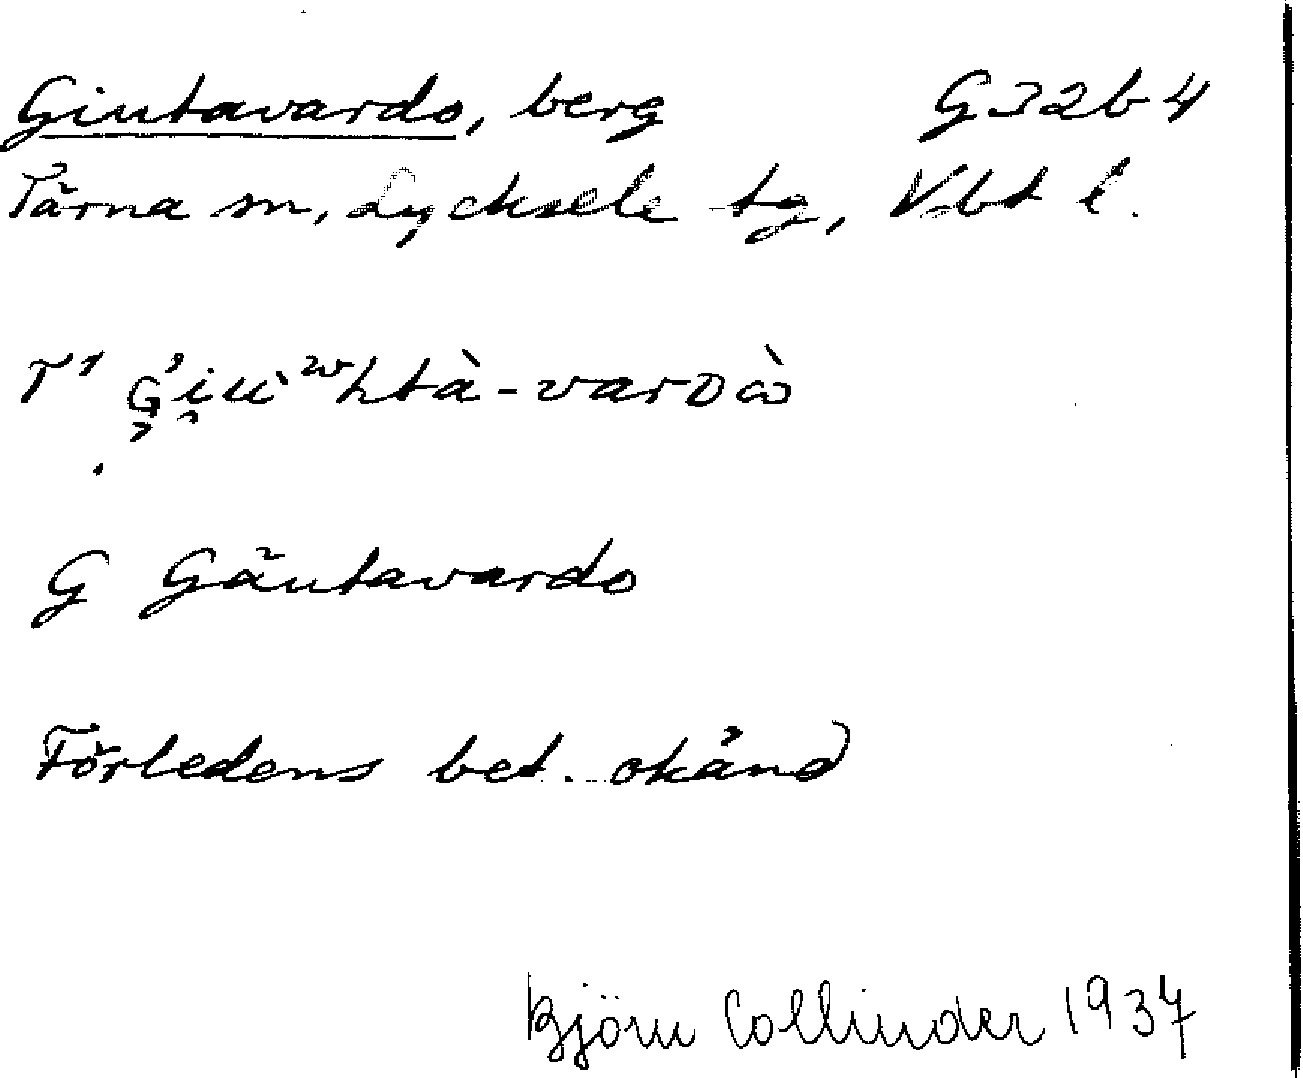 Giutavardo, berg G32b4
Tärna sn, Lycksele tg, Vbt l.
G Gäutavardo
Förledens bet. okänd
Björn Collinder 1937